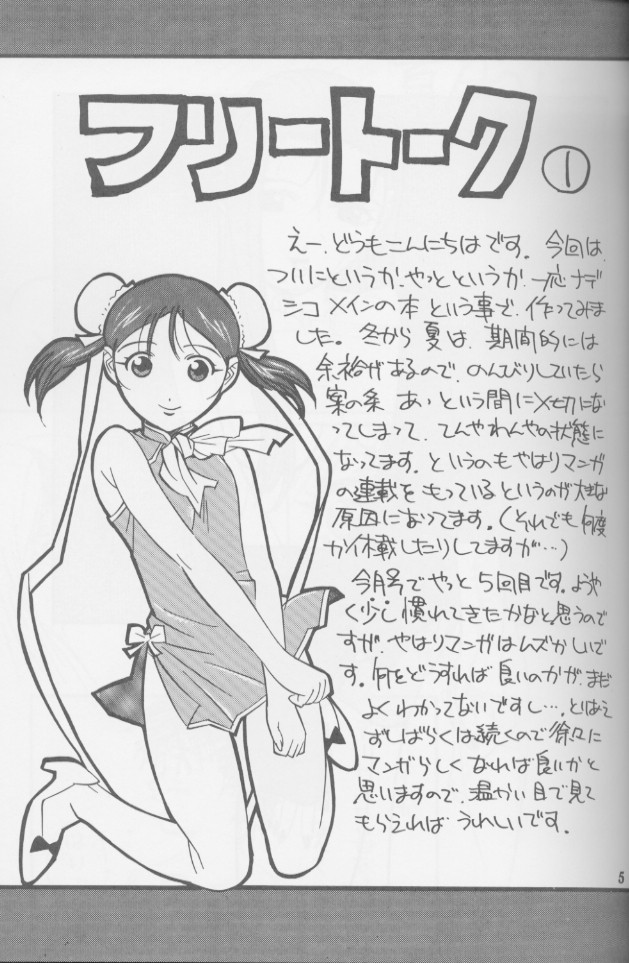 フリートーク ①
えー、どうもこんにちはです。今回は、
ついにというか、やっとというか、一応ナデ
シコメインの本という事で、作ってみま
した。冬から夏は、期間的には
余裕があるので、のんびりしていたら
案の条 あっという間に〆切にな
ってしまって、てんやわんやの状態に
なってます。というのもやはりマンガ
の連載をもっているというのが大きな
原因になってます。(それでも何度
か休載したりしてますが…)
今月号でやっと5回目です。ようや
く少し慣れてきたかなと思うので
すが、やはりマンガはムズかしいで
す。何をどうすれば良いのかが、まだ
よくわかってないですし…、とはいえ
まだしばらくは続くので徐々に
マンガらしくなれば良いかと
思いますので、温かい目で見て
もらえれば うれしいです。
5